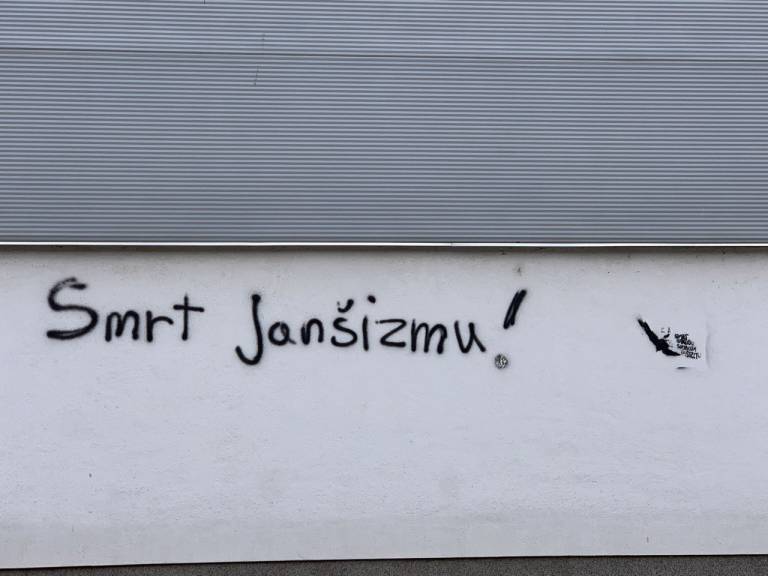 Smrt Janšizmu!